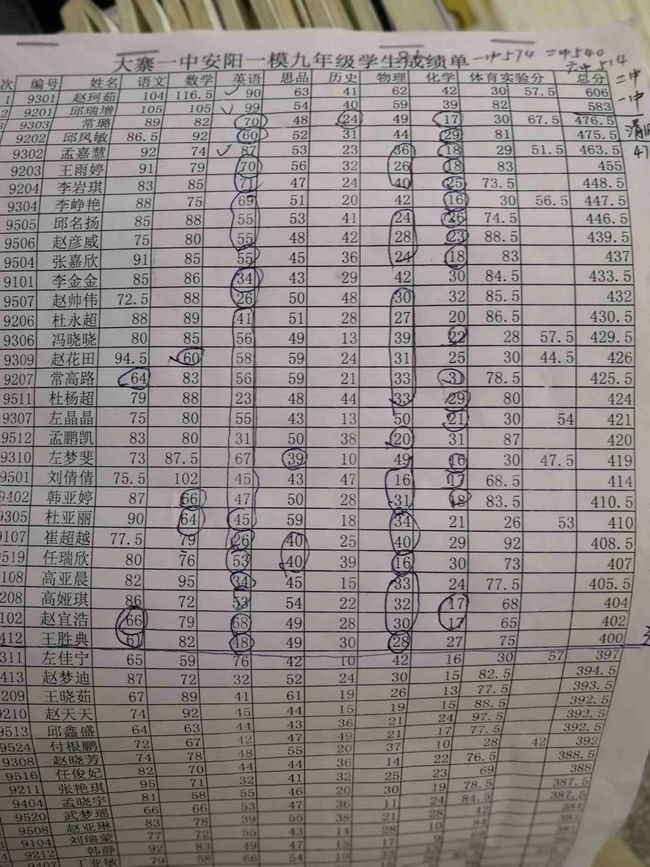 大寨一中安阳一模九年级学生成绩单 一中574 二中540
六中514
次 编号 姓名 语文 数学 英语 思品 历史 物理 化学 体育实验分 总分 二中
1 9301 赵珂茹 104 116.5 90 63 41 62 42 30 57.5 606 一中
2 9201 邱瑞增 105 105 99 54 40 59 39 82 583
9303 常璐 89 82 70 48 24 49 17 30 67.5 476.5
9202 邱凤敏 86.5 92 60 52 31 44 29 81 475.5
9302 孟嘉慧 92 74 87 53 23 36 18 29 51.5 463.5
9203 王雨婷 91 79 70 56 32 26 18 83 455
9204 李岩琪 83 85 71 47 24 40 25 73.5 448.5
9304 李峥艳 88 75 69 51 20 42 16 30 56.5 447.5
9505 邱名扬 85 88 55 53 41 24 26 74.5 446.5
9506 赵彦威 75 80 55 48 42 28 23 88.5 439.5
9504 张嘉欣 91 85 55 45 36 24 18 83 437
9101 李金金 85 86 34 43 29 42 30 84.5 433.5
9507 赵帅伟 72.5 88 26 50 48 30 32 85.5 432
9206 杜永超 88 89 41 51 28 27 20 86.5 430.5
9306 冯晓晓 80 85 56 49 13 39 22 28 57.5 429.5
9309 赵花田 94.5 60 58 59 24 31 25 30 44.5 426
9207 常高路 64 83 56 59 21 33 31 78.5 425.5
9511 杜杨超 79 88 23 48 44 33 29 80 424
9307 左晶晶 75 80 55 43 13 50 21 30 54 421
9512 孟鹏凯 83 80 31 50 38 20 31 87 420
9310 左梦斐 73 87.5 67 39 10 49 16 30 47.5 419
9501 刘倩倩 75.5 102 45 43 47 16 17 68.5 414
9402 韩亚婷 87 66 47 50 28 31 18 83.5 410.5
9305 杜亚丽 90 64 45 59 18 34 21 26 53 410
9107 崔超越 77.5 79 26 40 25 40 29 92 408.5
9519 任瑞欣 80 76 53 40 39 16 30 73 407
108 高亚晨 82 95 34 45 15 33 24 77.5 405.5
208 高娅琪 86 72 53 54 22 32 17 68 404
102 赵宜浩 66 79 68 49 28 30 17 65 402
412 王胜典 61 82 48 49 30 28 27 75 400
311 左佳宁 65 59 76 42 10 42 16 30 57 397
413 赵梦迪 87 72 32 52 24 30 15 82.5 394.5
209 王晓茹 67 89 41 61 19 26 13 77.5 393.5
9210 赵天天 74 92 45 44 15 19 15 88.5 392.5
9513 邱鑫盛 64 63 44 43 36 21 24 97.5 392.5
9524 付根鹏 72 67 42 47 49 21 17 77.5 392.5
9308 赵晓芳 74 78 48 55 20 37 10 28 42 392
9516 任俊妃 82 70 44 44 36 14 22 76.5 388.5
9211 张艳琪 95 71 32 41 32 25 23 69 388
9404 孟晓宇 81 58 55 46 20 30 19 78.5 387.5
9520 武梦瑶 66 66 53 47 36 11 24 84.5 387.5
9508 赵亚琳 83 78 39 55 38 21 28 42 384
9104 刘瑞蒙 77 72 55 43 14 28 10 84
9212 韩静 92 83
王亚敏 79 58 66 54